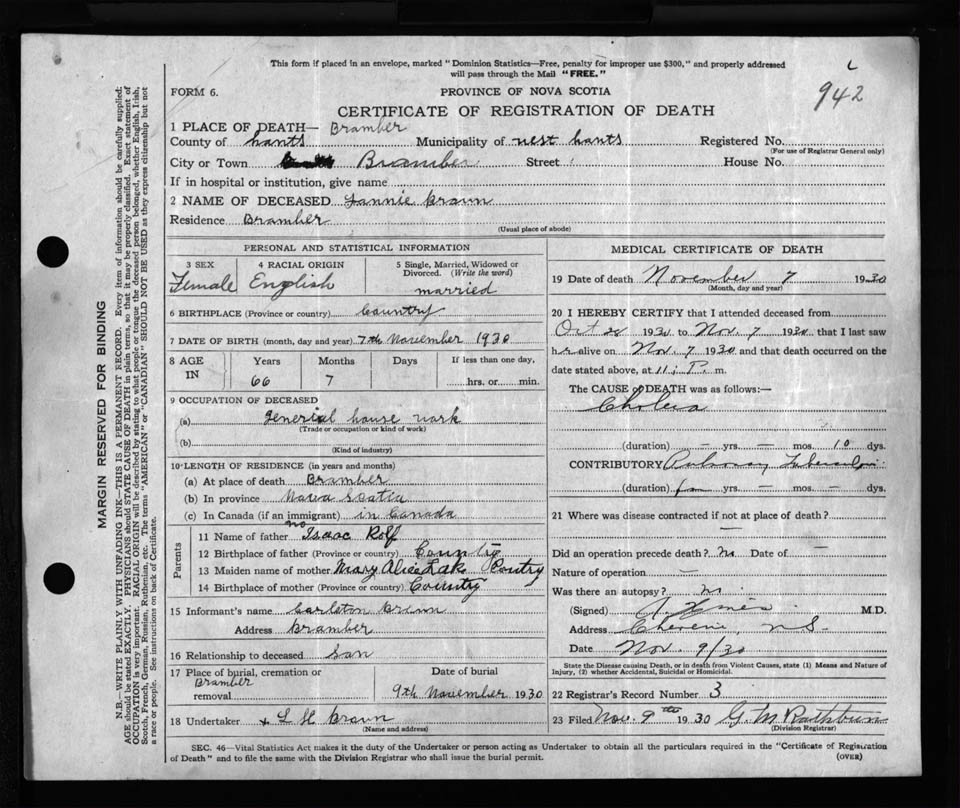 This form if placed in an envelope, marked "Dominion Statistics—Free, penalty for improper use $300," and properly addressed
will pass through the Mail "FREE."
942
FORM 6.
PROVINCE OF NOVA SCOTIA
CERTIFICATE OF REGISTRATION OF DEATH
1 PLACE OF DEATH— Bramber
County of hants Municipality of west hants Registered No.
(For use of Registrar General only)
City or Town Bramber Street House No.
If in hospital or institution, give name
2 NAME OF DECEASED Fannie Braun
Residence Bramber
(Usual place of abode)
PERSONAL AND STATISTICAL INFORMATION
3 SEX
Female
4 RACIAL ORIGIN
English
5 Single, Married, Widowed or
Divorced. (Write the word)
married
6 BIRTHPLACE (Province or country) Country
7 DATE OF BIRTH (month, day and year) 7th November 1930
8 AGE
IN
Years
66
Months
7
Days
If less than one day,
hrs. or min.
9 OCCUPATION OF DECEASED
(a) Generial house work
(Trade or occupation or kind of work)
(b)
(Kind of industry)
10 LENGTH OF RESIDENCE (in years and months)
(a) At place of death Bramber
(b) In province Nova Scotia
(c) In Canada (if an immigrant) in Canada
no
Parents
11 Name of father Isaac Rolf
12 Birthplace of father (Province or country) Country
13 Maiden name of mother Mary Alice
14 Birthplace of mother (Province or country) Country
15 Informant's name Carleton Braun
Address Bramber
16 Relationship to deceased Son
17 Place of burial, cremation or
Bramber
removal
Date of burial
9th November 1930
18 Undertaker L H Braun
(Name and address)
MEDICAL CERTIFICATE OF DEATH
19 Date of death November 7 1930
(Month, day and year)
20 I HEREBY CERTIFY that I attended deceased from
Oct 1930 to Nov. 7 1930 that I last saw
her alive on Nov 7 1930 and that death occurred on the
date stated above, at 11 P. m.
The CAUSE OF DEATH was as follows:—
Cholera
(duration) — yrs. — mos. 10 dys.
CONTRIBUTORY Pulmonary Tuberculosis
(duration) yrs. mos. dys.
21 Where was disease contracted if not at place of death?
—
Did an operation precede death? no Date of —
Nature of operation —
Was there an autopsy? no
(Signed) M.D.
Address Cheverie, N.S.
Date Nov. 9/30
State the Disease causing Death, or in death from Violent Causes, state (1) Means and Nature of
Injury, (2) whether Accidental, Suicidal or Homicidal.
22 Registrar's Record Number 3
23 Filed Nov. 9th 1930 G. M Rathburn
(Division Registrar)
SEC. 46—Vital Statistics Act makes it the duty of the Undertaker or person acting as Undertaker to obtain all the particulars required in the "Certificate of Registration
of Death" and to file the same with the Division Registrar who shall issue the burial permit.
(OVER)
MARGIN RESERVED FOR BINDING
N.B.—WRITE PLAINLY WITH UNFADING INK—THIS IS A PERMANENT RECORD. Every item of information should be carefully supplied;
AGE should be stated EXACTLY. PHYSICIANS should STATE CAUSE OF DEATH in plain terms, so that it may be properly classified. Exact statement of
OCCUPATION is very important. RACIAL ORIGIN will be described by stating to what people or tongue the deceased person belonged, whether English, Irish,
Scotch, French, German, Russian, Ruthenian, etc. The terms "AMERICAN" or "CANADIAN" SHOULD NOT BE USED as they express citizenship but not
a race or people. See instructions on back of Certificate.